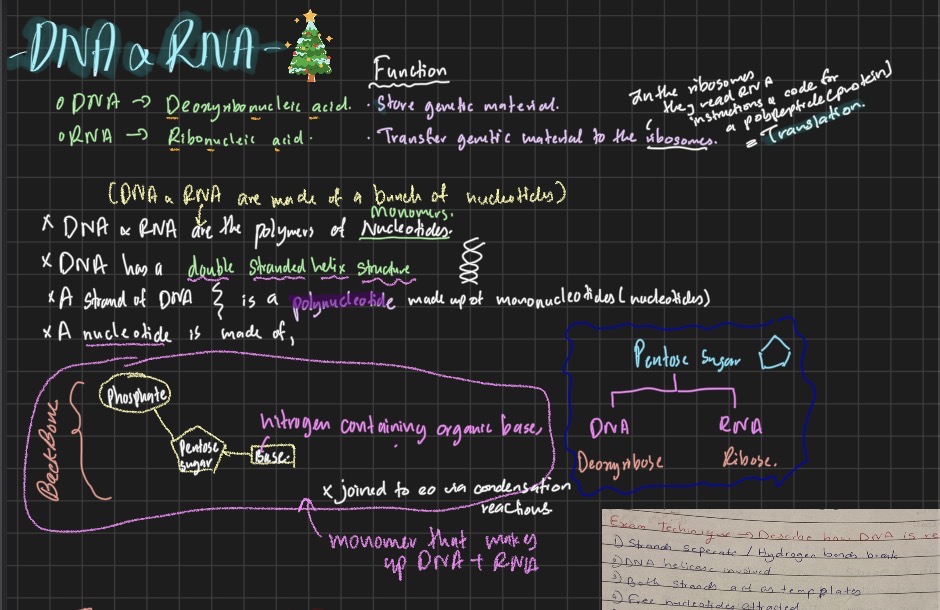 -DNA & RNA-
Function
o DNA → Deoxyribonucleic acid. · Store genetic material.
o RNA → Ribonucleic acid. · Transfer genetic material to the ribosomes.
In the ribosomes
they read RNA
instructions & code for
a polypeptide (protein)
= Translation.
(DNA & RNA are made of a bunch of nucleotides)
monomers.
x DNA & RNA are the polymers of Nucleotides.
x DNA has a double stranded helix structure
x A strand of DNA is a polynucleotide made up of mononucleotides (nucleotides)
x A nucleotide is made of,
BackBone
Phosphate
Pentose
sugar
Base.
nitrogen containing organic base,
x joined to eo via condensation
reactions
monomer that makes
up DNA + RNA
Pentose sugar
DNA RNA
Deoxyribose Ribose.
Exam technique → Describe how DNA is re
1) Strands seperate / Hydrogen bonds break
2) DNA helicase involved
3) Both strands act as templates
4) Free nucleotides attracted